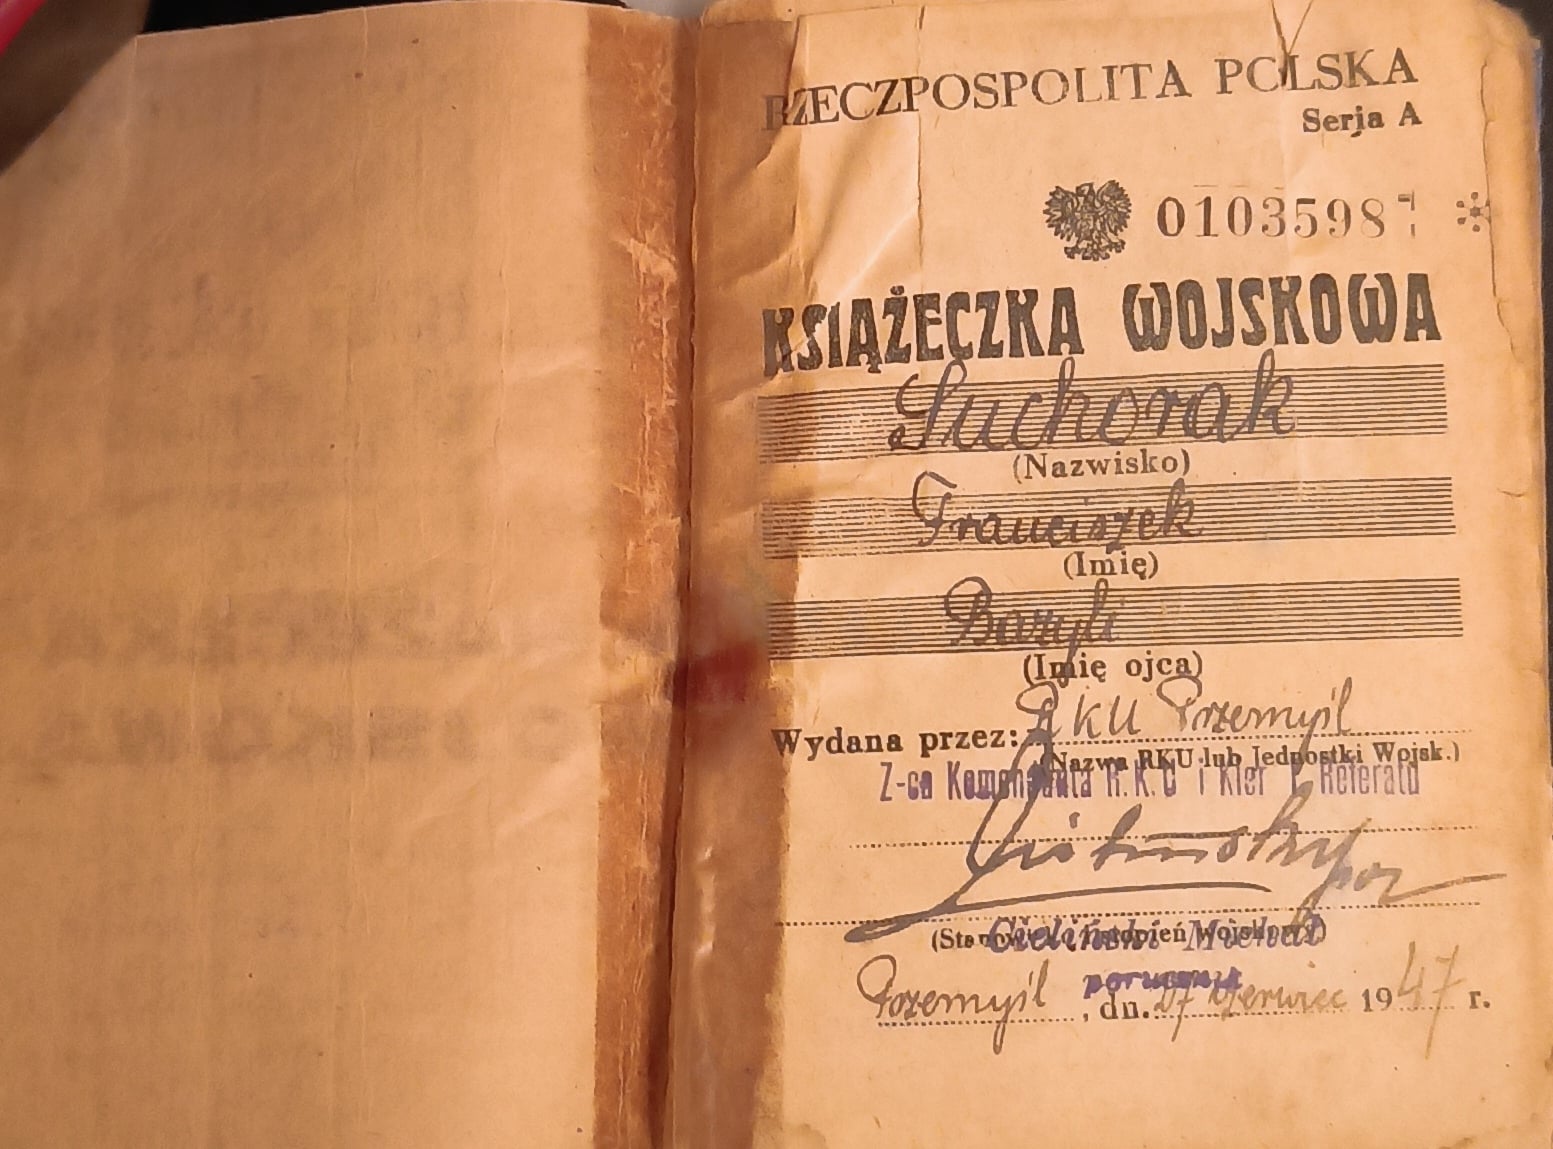 RZECZPOSPOLITA POLSKA
Serja A
0103598
KSIĄŻECZKA WOJSKOWA
Suchorak
(Nazwisko)
Franciszek
(Imię)
Bazyli
(Imię ojca)
Wydana przez: RKU Przemyśl
(Nazwa RKU lub Jednostki Wojsk.)
Z-ca Komendanta R.K.U i Kier I Referatu
(Stanowisko i stopień wojskowy)
Cieliński Michał
porucznik
Przemyśl, dn. 27 czerwiec 1947 r.